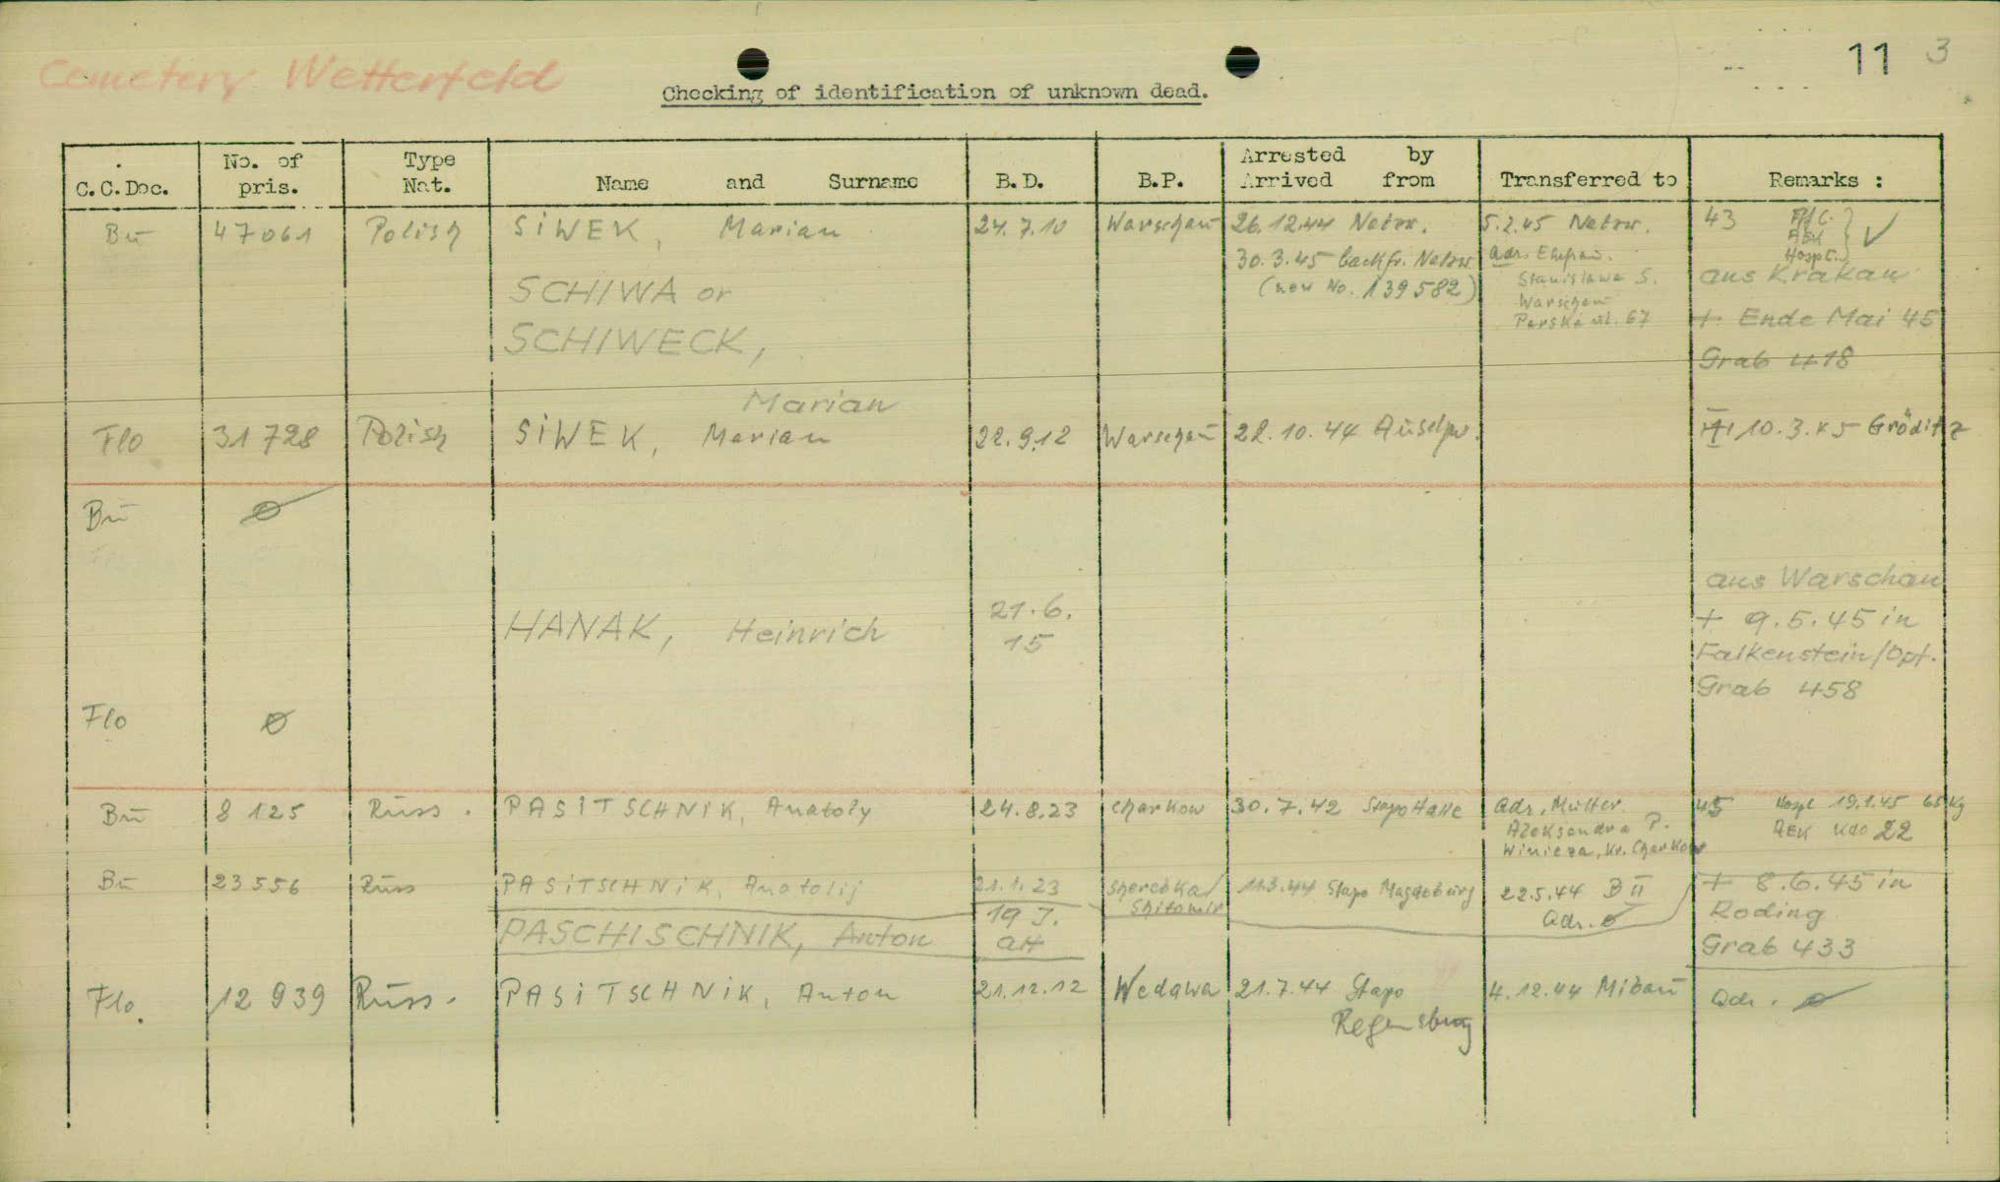 Cemetery Wetterfeld
11 3
Checking of identification of unknown dead.
C.C.Doc. No. of pris. Type Nat. Name and Surname B.D. B.P. Arrested by Arrived from Transferred to Remarks :
Bū 47061 Polish SIWEK, Marian 24.7.10 Warschau 26.12.44 Natzw. 5.2.45 Natzw. 43
30.3.45 back fr. Natzw. adr. Ehefrau.
(new No. 139582) Stanislawa S.
Warschau
67
SCHIWA or
SCHIWECK,
Marian
aus Krakau
+ Ende Mai 45
Grab 418
Flo 31728 Polish SIWEK, Marian 22.9.12 Warschau 22.10.44 10.3.45 Gröditz
Bū ø
HANAK, Heinrich 21.6.
15
aus Warschau
+ 9.5.45 in
Falkenstein/Opf.
Grab 458
Flo ø
Bū 8125 Russ. PASITSCHNIK, Anatoly 24.8.23 Charkow 30.7.42 Stapo Halle adr. Mutter 45 Hospt 19.1.45 65 kg
Aleksandra P. AEK Kdo 22
Kr. Charkow
Bū 23556 Russ PASITSCHNIK, Anatolij 21.1.23 Shitomir 11.3.44 Stapo Magdeburg 22.5.44 B II
adr. ø
PASCHISCHNIK, Anton 19 J.
alt
+ 8.6.45 in
Roding
Grab 433
Flo. 12939 Russ. PASITSCHNIK, Anton 21.12.12 Wedawa 21.7.44 Stapo 4.12.44 Mibau adr. ø
Regensburg